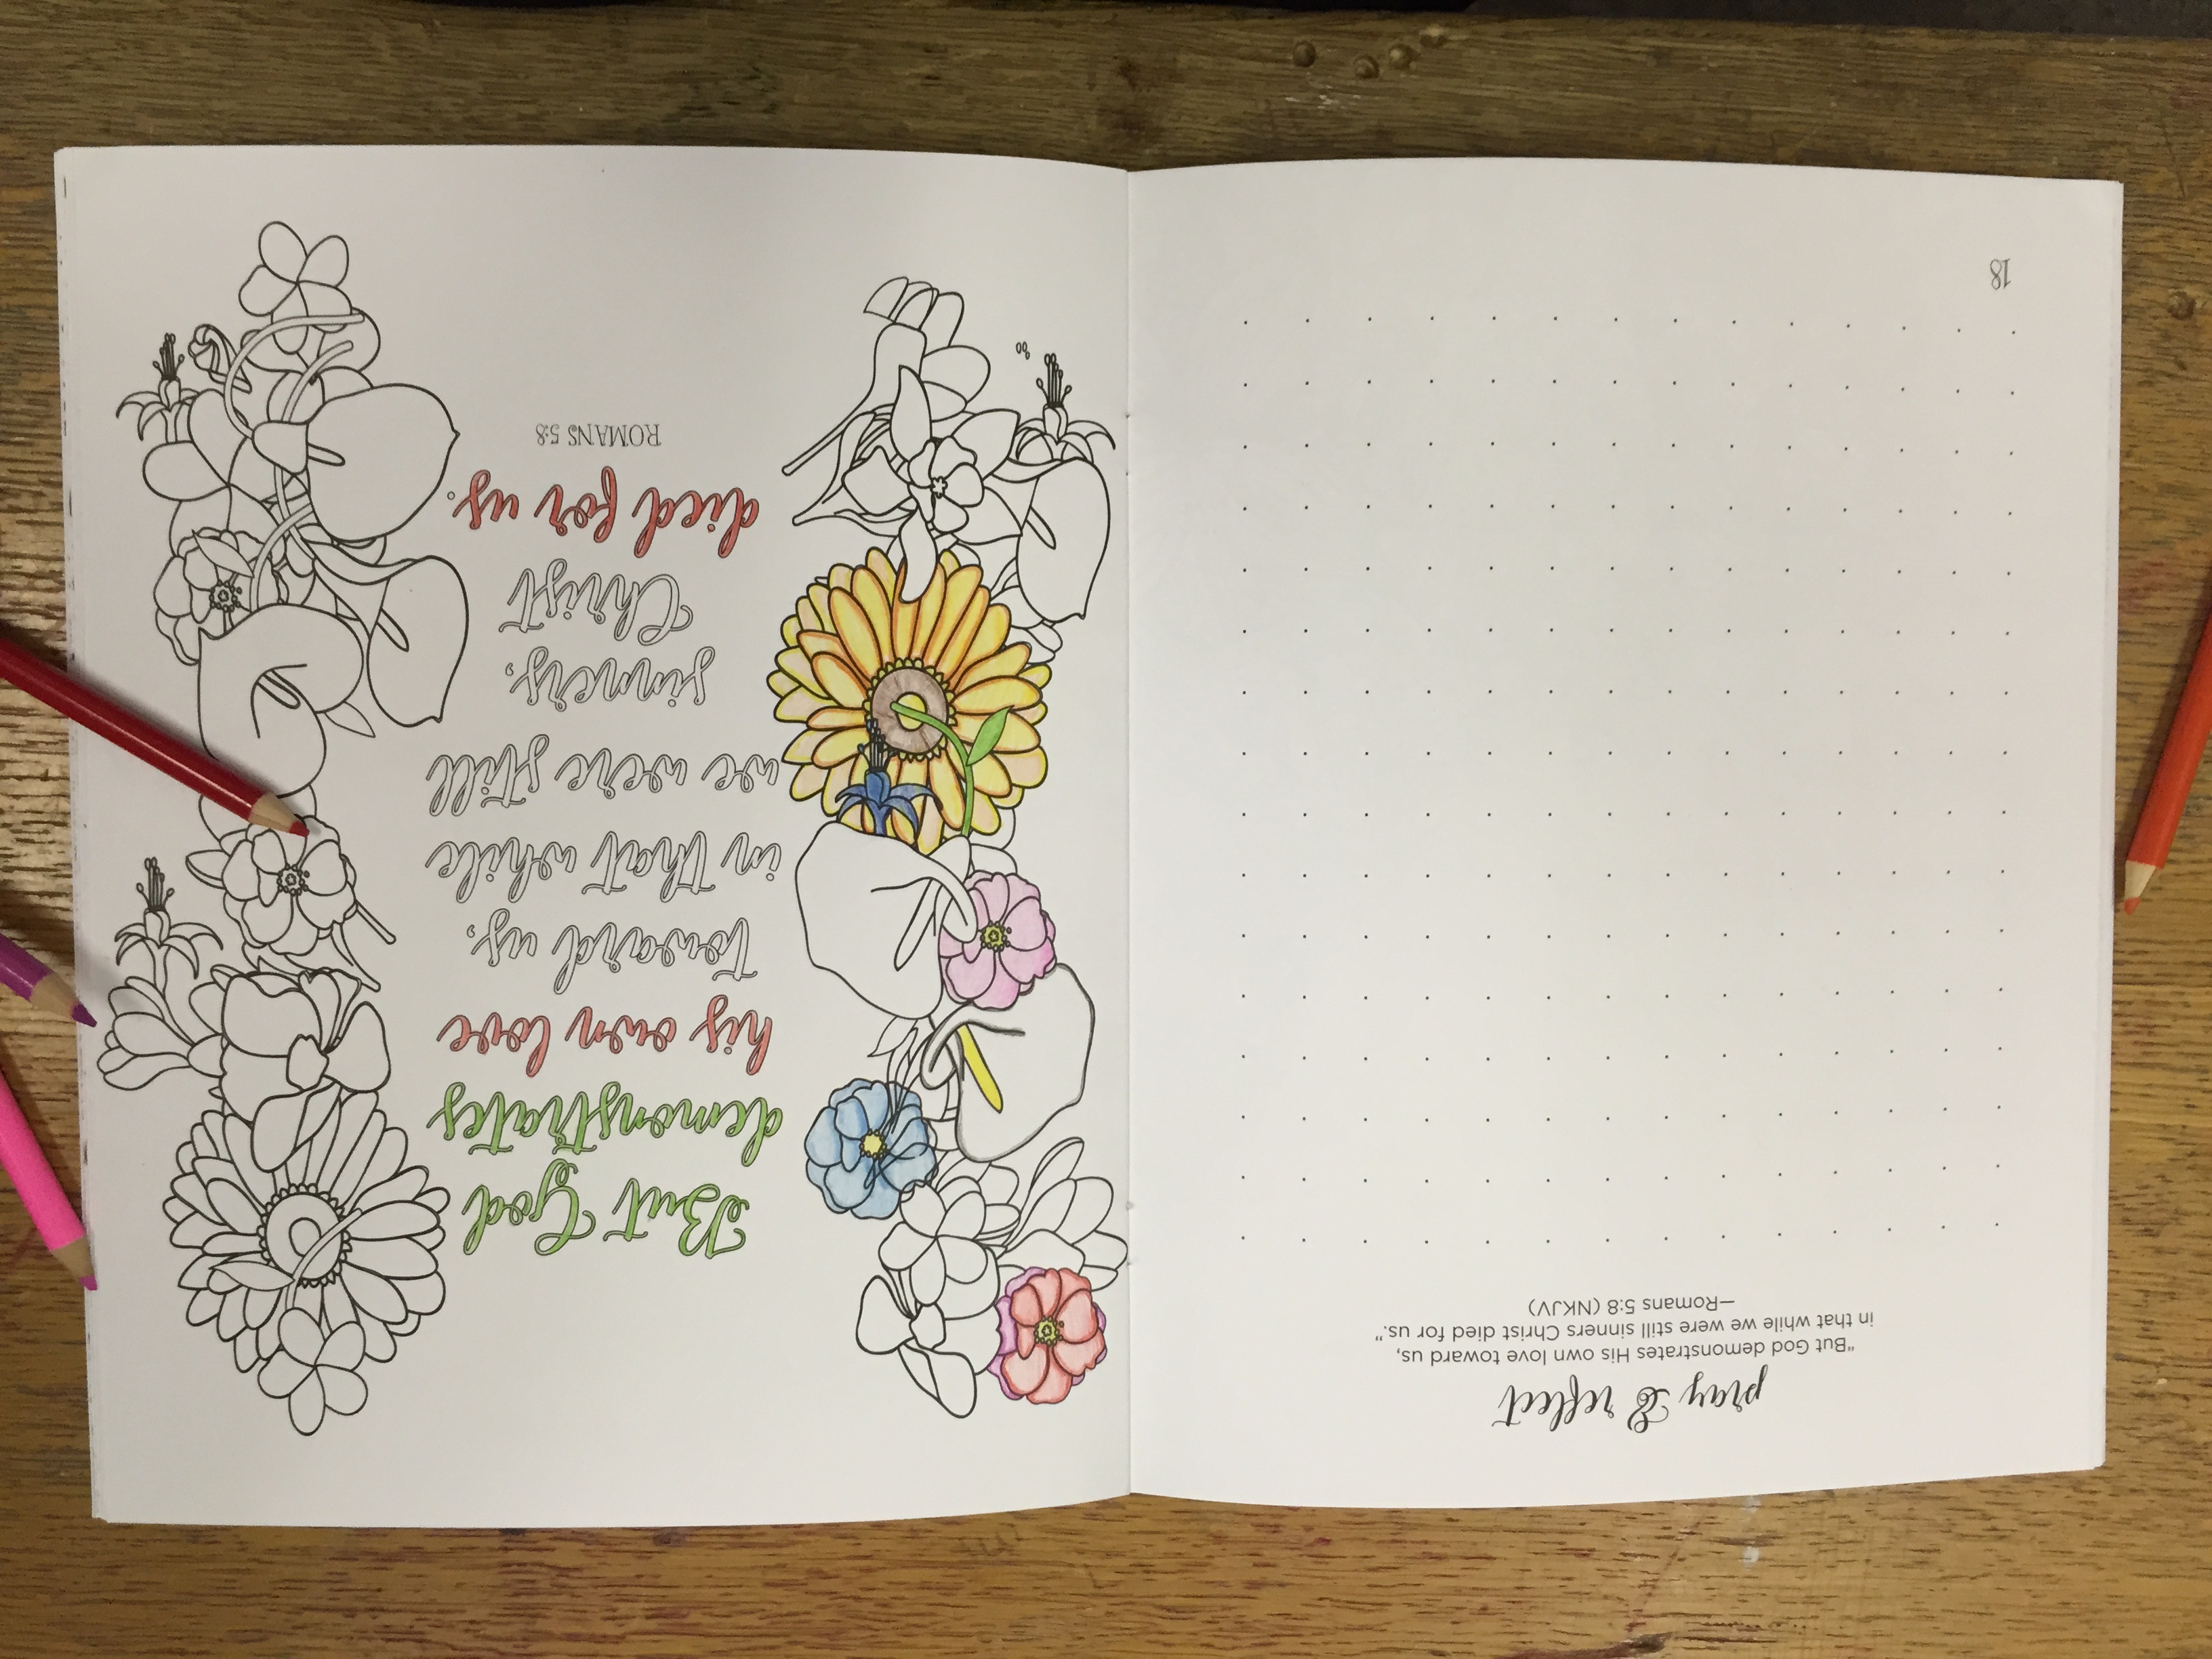 pray & reflect
"But God demonstrates His own love toward us,
in that while we were still sinners Christ died for us."
—Romans 5:8 (NKJV)
18
But God
demonstrates
his own love
toward us,
in that while
we were still
sinners,
Christ
died for us.
ROMANS 5:8